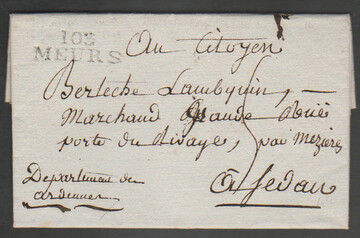 103
MEURS
Au Citoyen
Berteche Lambquin, –
Marchand Grande Rue
porte du Rivage, par Mezieres
5
à Sedan
Departement des
ardennes